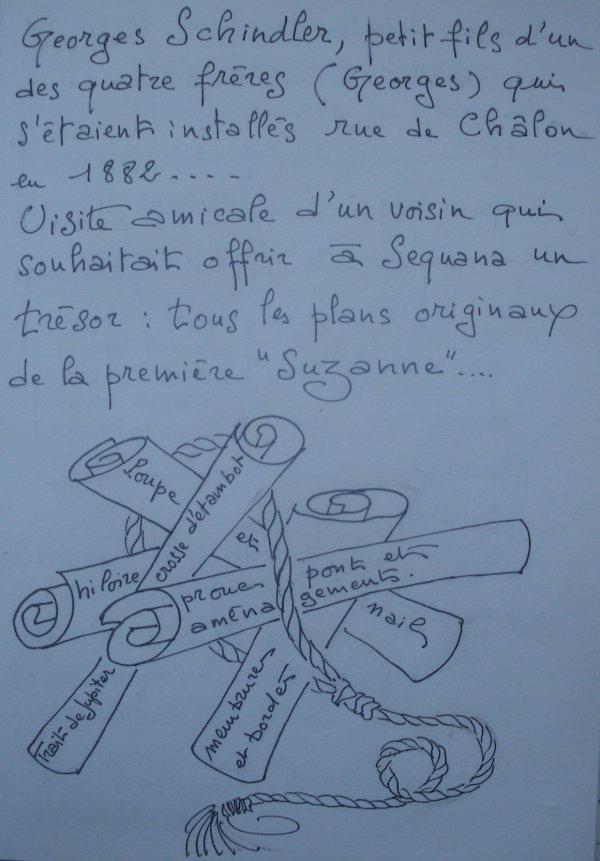 Georges Schindler, petit fils d'un
des quatre frères (Georges) qui
s'étaient installés rue de Châlon
en 1882....
Visite amicale d'un voisin qui
souhaitait offrir à Sequana un
trésor : tous les plans originaux
de la première "Suzanne"....
Poupe
crosse d'étambot
et
hiloire
proue
pont et
aménagements.
Trait de Jupiter
membrures
et bordés